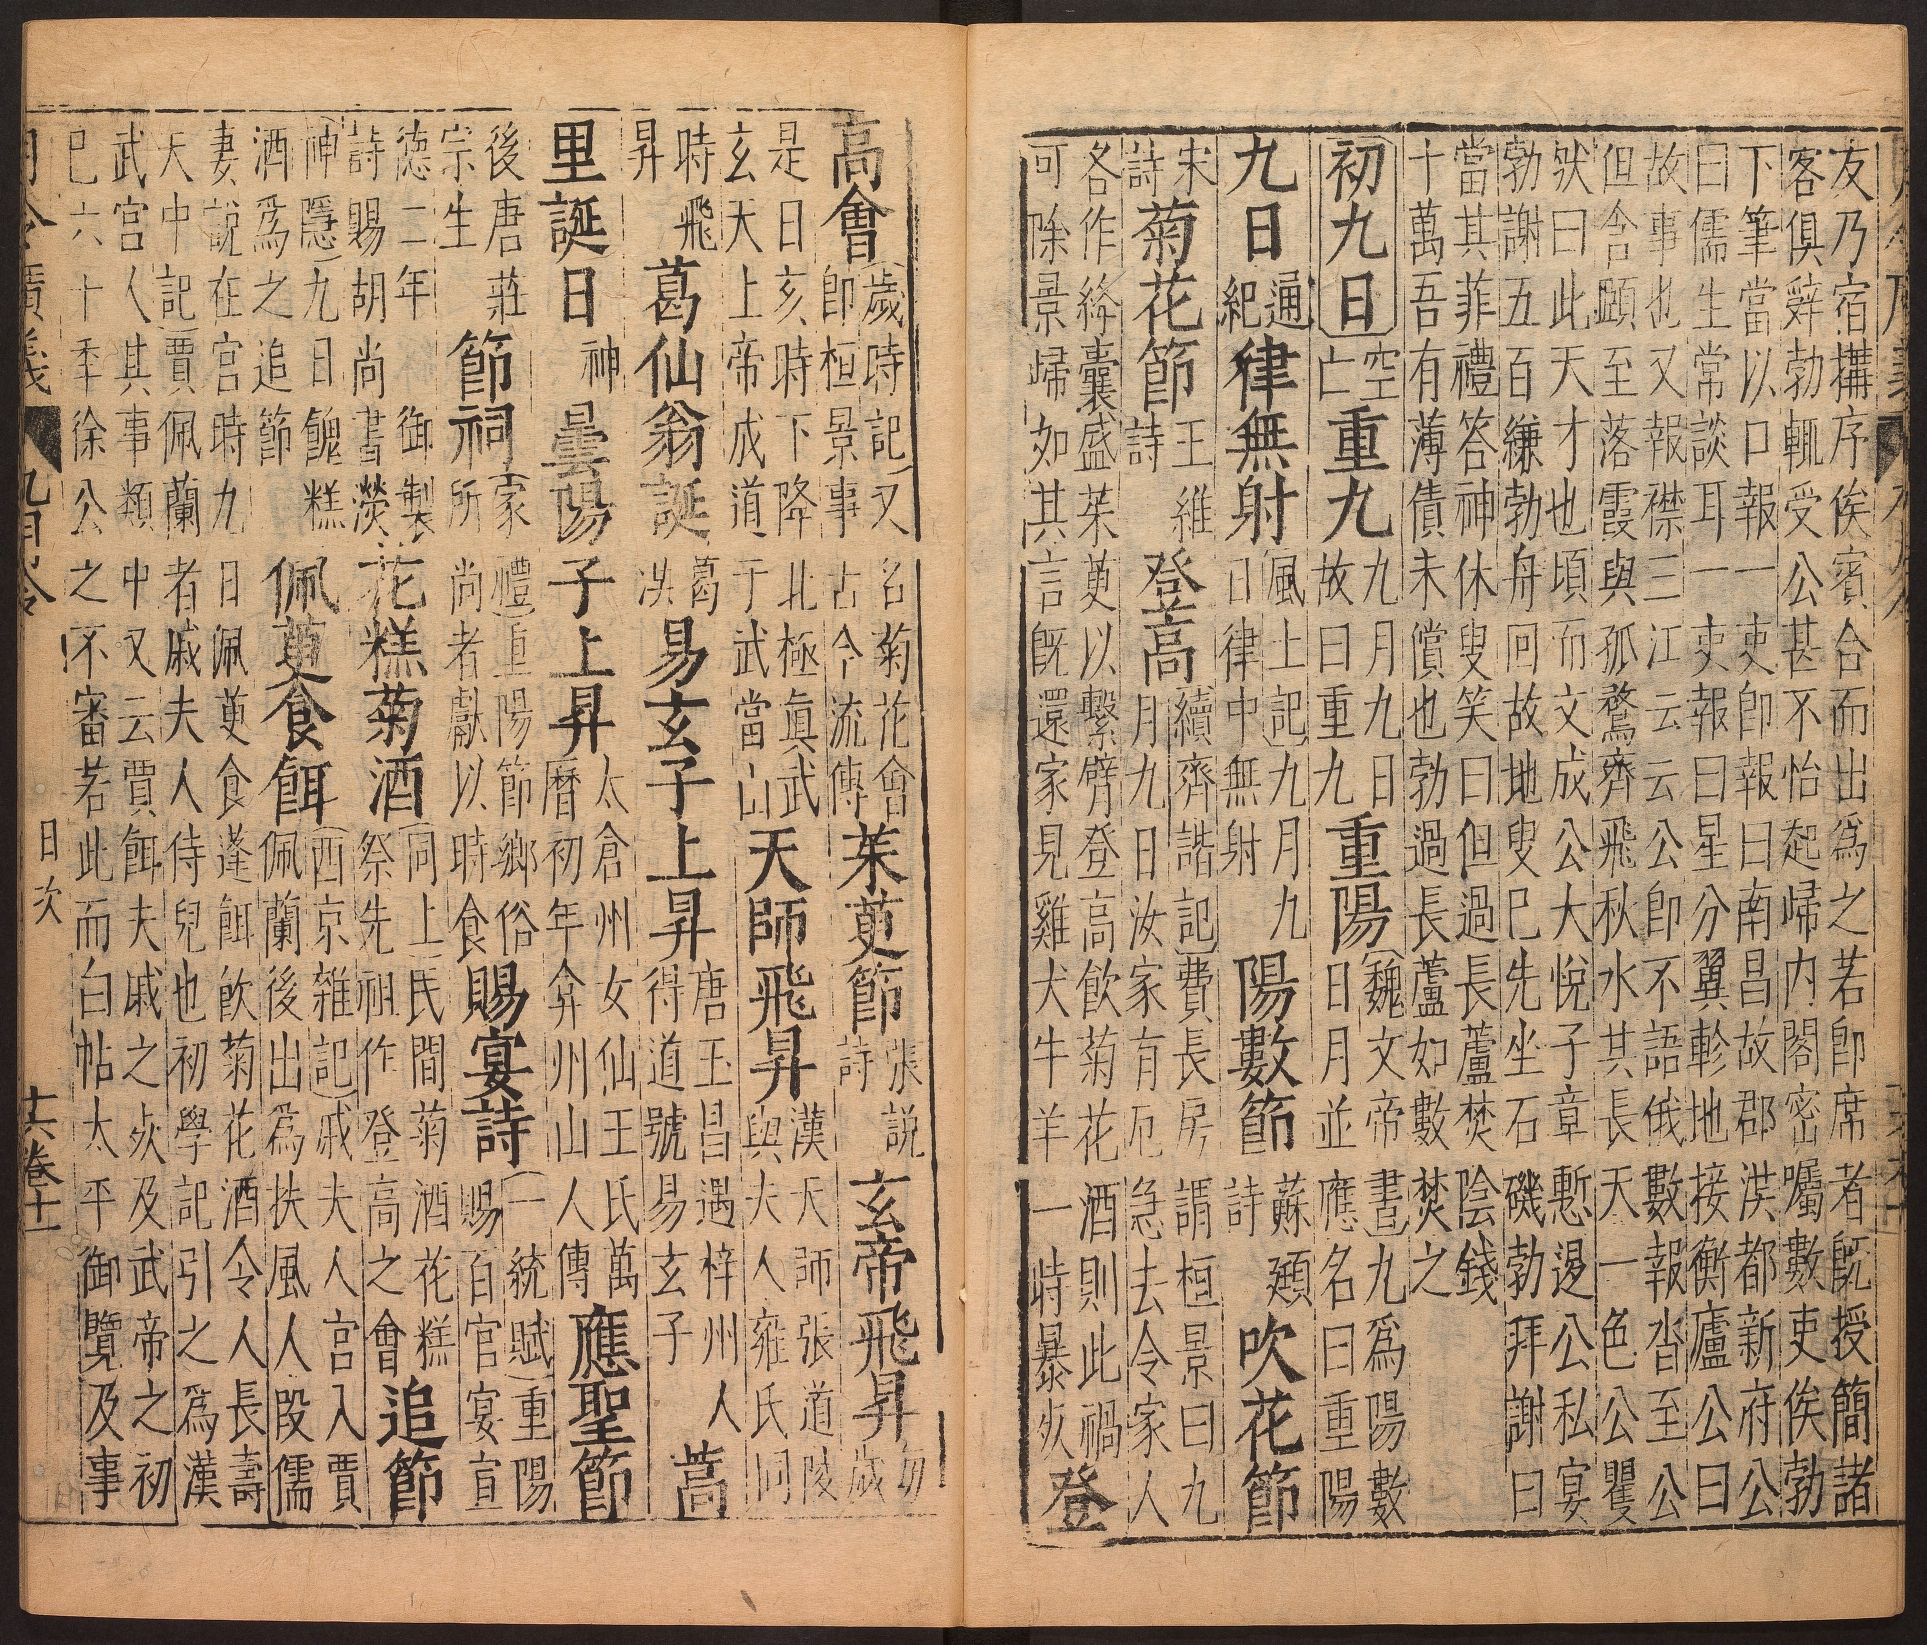 友乃宿搆序俟賓合而出爲之若卽席者旣授簡諸
客俱辭勃輒受公甚不怡起歸內閣密囑數吏俟勃
下筆當以口報一吏卽報曰南昌故郡洪都新府公
曰儒生常談耳一吏報曰星分翼軫地接衡廬公曰
故事也又報襟三江云云公卽不語俄數報沓至公
但含頤至落霞與孤鶩齊飛秋水其長天一色公瞿
狀曰此天才也頃而文成公大悅子章慙遑公私宴
勃謝五百縑勃舟回故地叟巳先坐石磯勃拜謝曰
當其菲禮答神休叟笑曰但過長蘆焚陰錢
十萬吾有薄債未償也勃過長蘆如數焚之
初九日 空亡 重九 九月九日故曰重九 重陽 (魏文帝書)九爲陽數日月並應名曰重陽
九日 通紀 律無射 (風土記)九月九日律中無射 陽數節 蘇頲詩 吹花節
宋詩 菊花節 王維詩 登高 (續齊諧記)費長房謂桓景曰九月九日汝家有厄急去令家人
各作絳囊盛茱萸以繫臂登高飲菊花酒則此禍
可除景歸如其言旣還家見雞犬牛羊一時暴死 登
高會 (歲時記)又名菊花會卽桓景事古今流傳 茱萸節 張說詩 玄帝飛昇 每歲
是日亥時下降北極眞武玄天上帝成道于武當山 天師飛昇 漢天師張道陵與夫人雍氏同
時飛昇 葛仙翁誕 葛洪 易玄子上昇 唐玉昌遇梓州人得道號易玄子 蒿
里誕日 神 曇陽子上昇 太倉州女仙王氏萬曆初年弇州山人傳 應聖節
後唐莊宗生 節祠 (家禮)重陽節鄉俗所尚者獻以時食 賜宴詩 (一統賦)重陽賜百官宴宣
德二年御製詩賜胡尚書濙 花糕菊酒 (同上)民間菊酒花糕祭先祖作登高之會 追節
(神隱)九日餽糕酒爲之追節 佩萸食餌 (西京雜記)戚夫人宮入賈佩蘭後出爲扶風人段儒
妻說在宮時九日佩萸食蓬餌飲菊花酒令人長壽
天中記(賈佩蘭者戚夫人侍兒也初學記引之爲漢
武宮人其事類中又云賈餌夫戚之死及武帝之初
巳六十年徐公之不審若此而白帖太平御覽及事
月令廣義 九月令 日次 十六 卷十